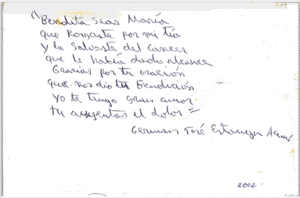 Bendita seas María
que rogaste por mi tía
y la salvaste del cancer
que le había dado alcance
Gracias por tu oración
que nos dio tu bendición
yo te tengo gran amor
tu ahuyentas el dolor
German José
2002